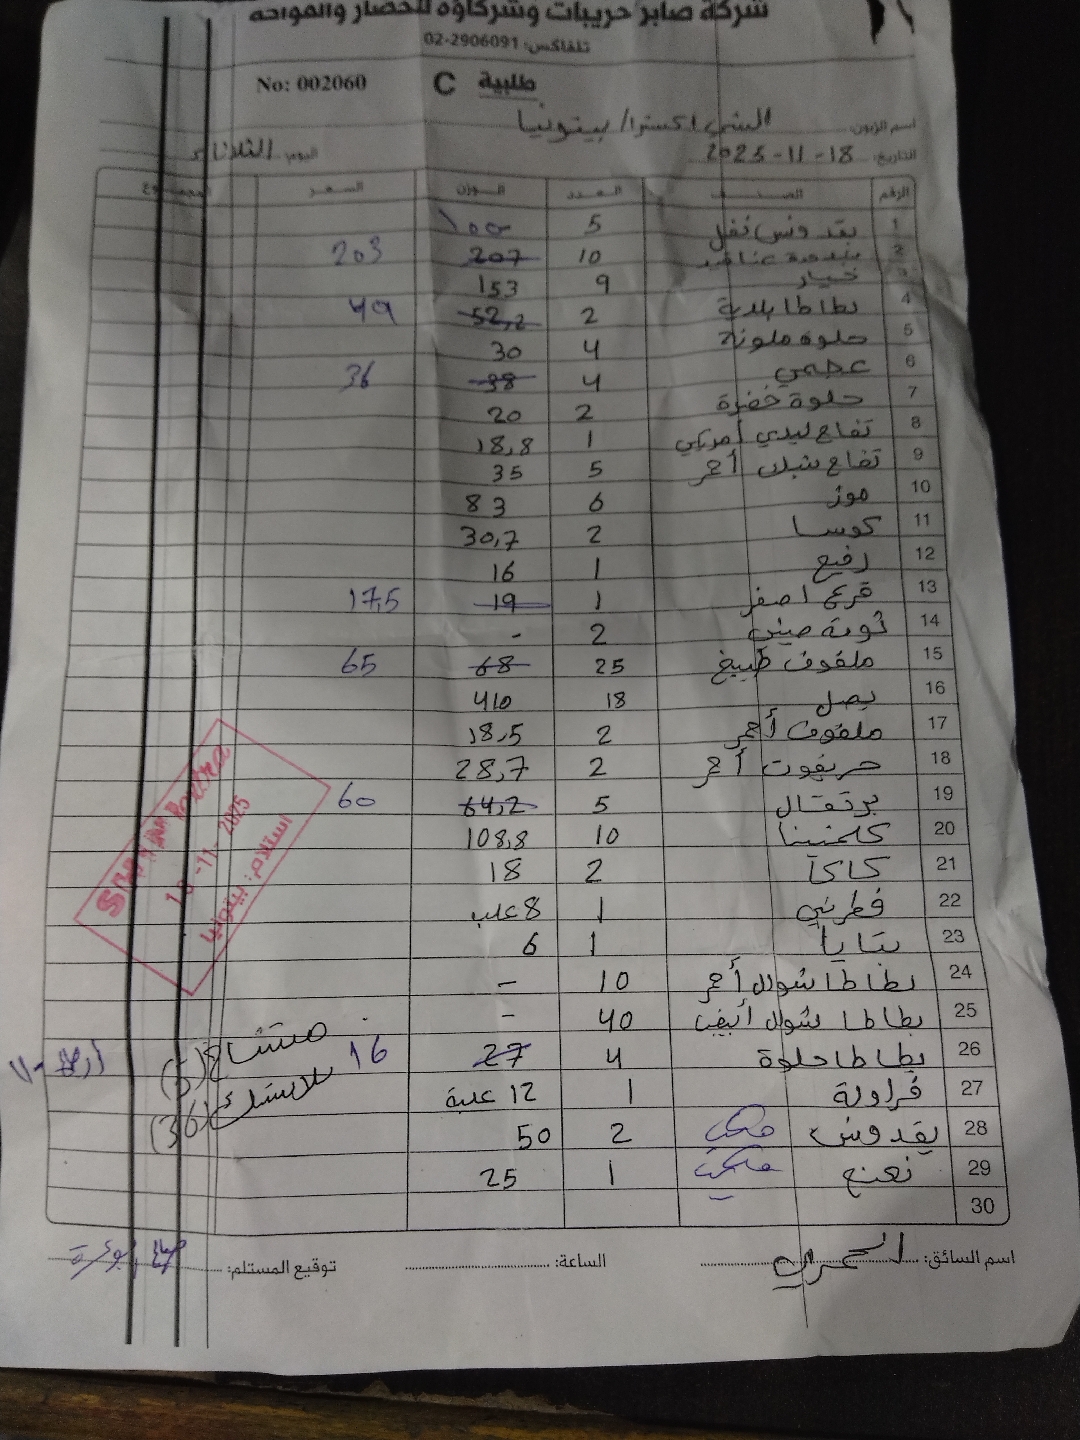 شركة صابر حريبات وشركاؤه للخضار والفواكه
تلفاكس: 02-2906091
طلبية C No: 002060
اسم الزبون: الشني اكسترا/ بيتونيا
التاريخ: 18-11-2025 اليوم: الثلاثاء
الرقم الصنف العدد الوزن السعر المجموع
1 بقدونس نفل 5 100
2 بندورة عناقيد 10 207 203
3 خيار 9 153
4 بطاطا بلدية 2 52,2 49
5 حلوة ملونة 4 30
6 عجمي 4 38 36
7 حلوة خضرة 2 20
8 تفاح ليدي أمريكي 1 18,8
9 تفاح أحمر 5 35
10 موز 6 83
11 كوسا 2 30,7
12 رفيع 1 16
13 قرع اصفر 1 19 17,5
14 ثومة صيني 2 -
15 ملفوف طبيخ 25 68 65
16 بصل 18 410
17 ملفوف أحمر 2 18,5
18 جريفوت أحمر 2 28,7
19 برتقال 5 64,2 60
20 كلمنتينا 10 108,8
21 كاكا 2 18
22 فطر نيي 1 8 علب
23 بتايا 1 6
24 بطاطا شوال أحمر 10 -
25 بطاطا شوال أبيض 40 -
26 بطاطا حلوة 4 27 16
27 فراولة 1 12 علبة
28 بقدونس 2 50
29 نعنع 1 25
30
18-11-2025
استلام: بيتونيا
مشتاح (5)
بلاستيك (36)
اسم السائق: العمري الساعة: توقيع المستلم: